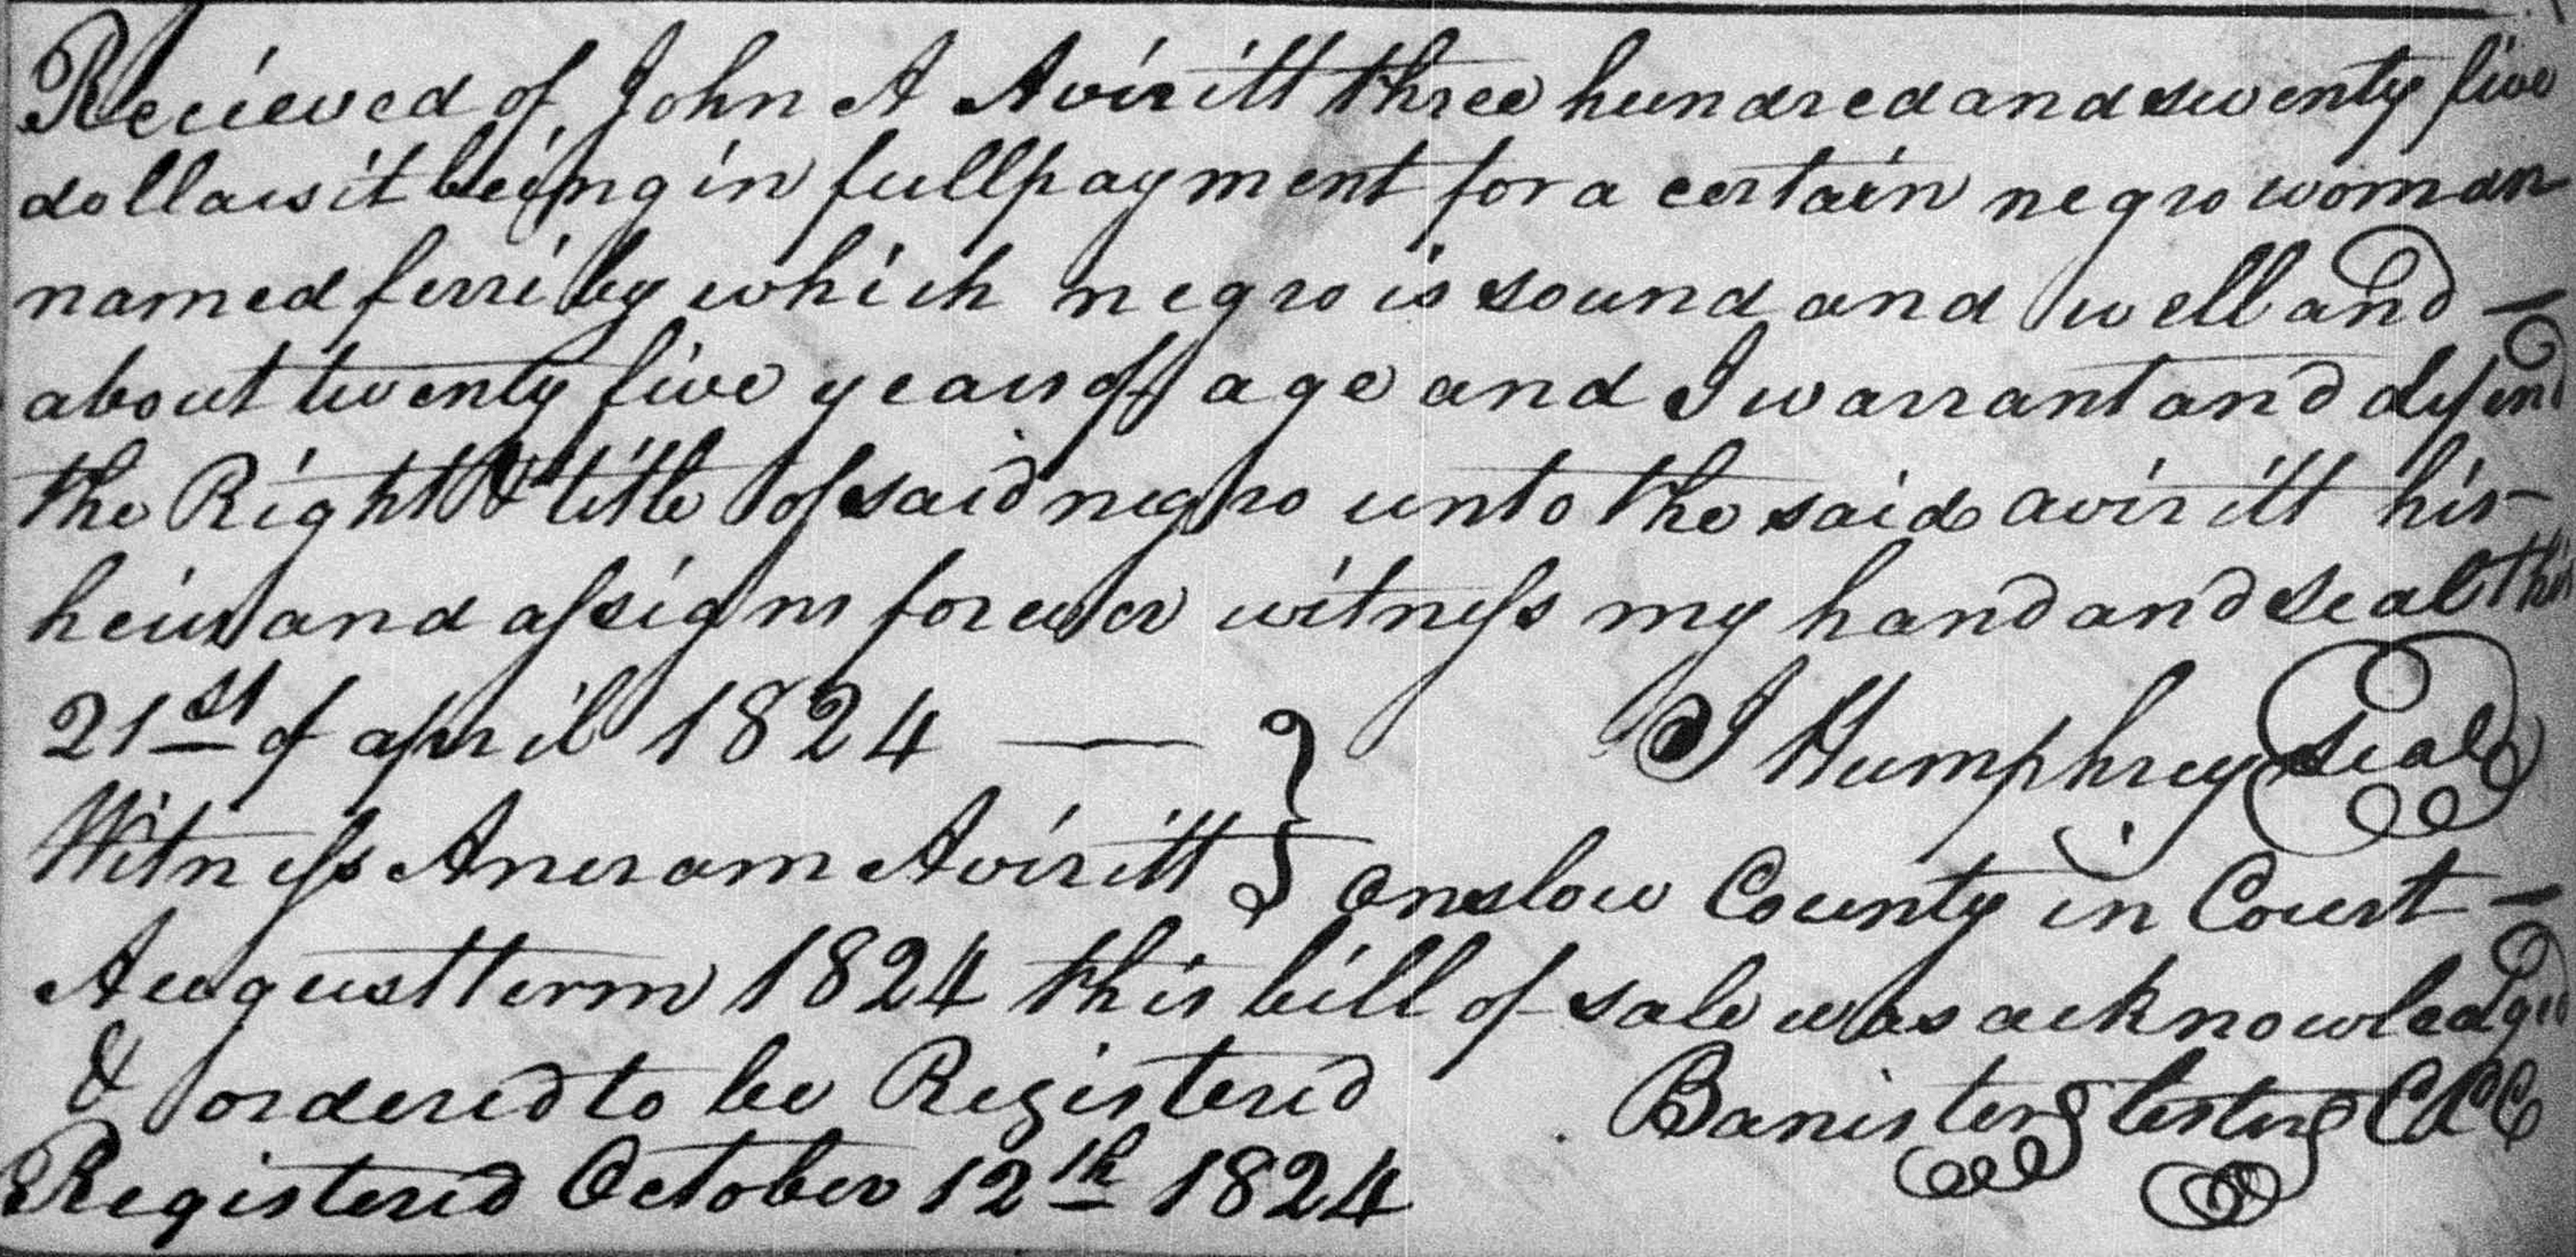 Recieved of John A Aviritt three hundred and twenty five
dollars it being in full payment for a certain negro woman
named ferriby which negro is sound and well and
about twenty five years of age and I warrant and defend
the Right & title of said negro unto the said aviritt his
heirs and assigns forever witness my hand and seal this
21st of april 1824 —
J Humphrey Seal
Witness Aviritt } Onslow County in Court
August term 1824 this bill of sale was acknowledged
& ordered to be Registered
Banister Lester CCC
Registered October 12th 1824